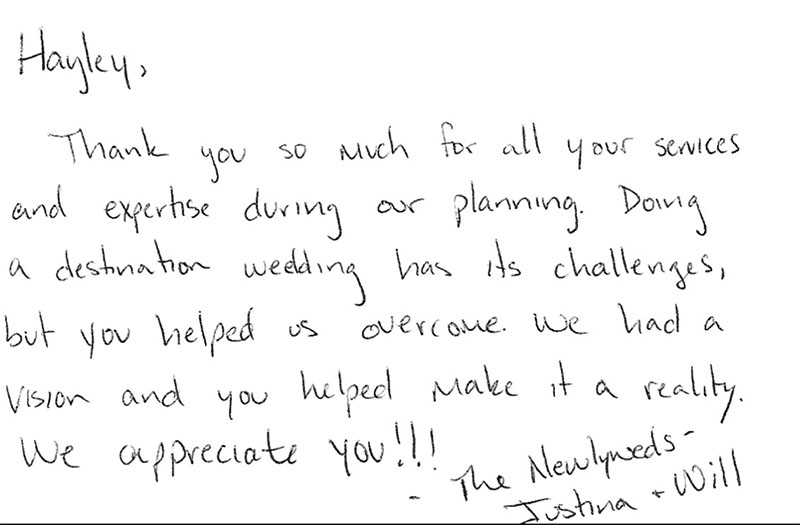 Hayley,
Thank you so much for all your services
and expertise during our planning. Doing
a destination wedding has its challenges,
but you helped us overcome. We had a
vision and you helped make it a reality.
We appreciate you!!!
- The Newlyweds -
Justina + Will